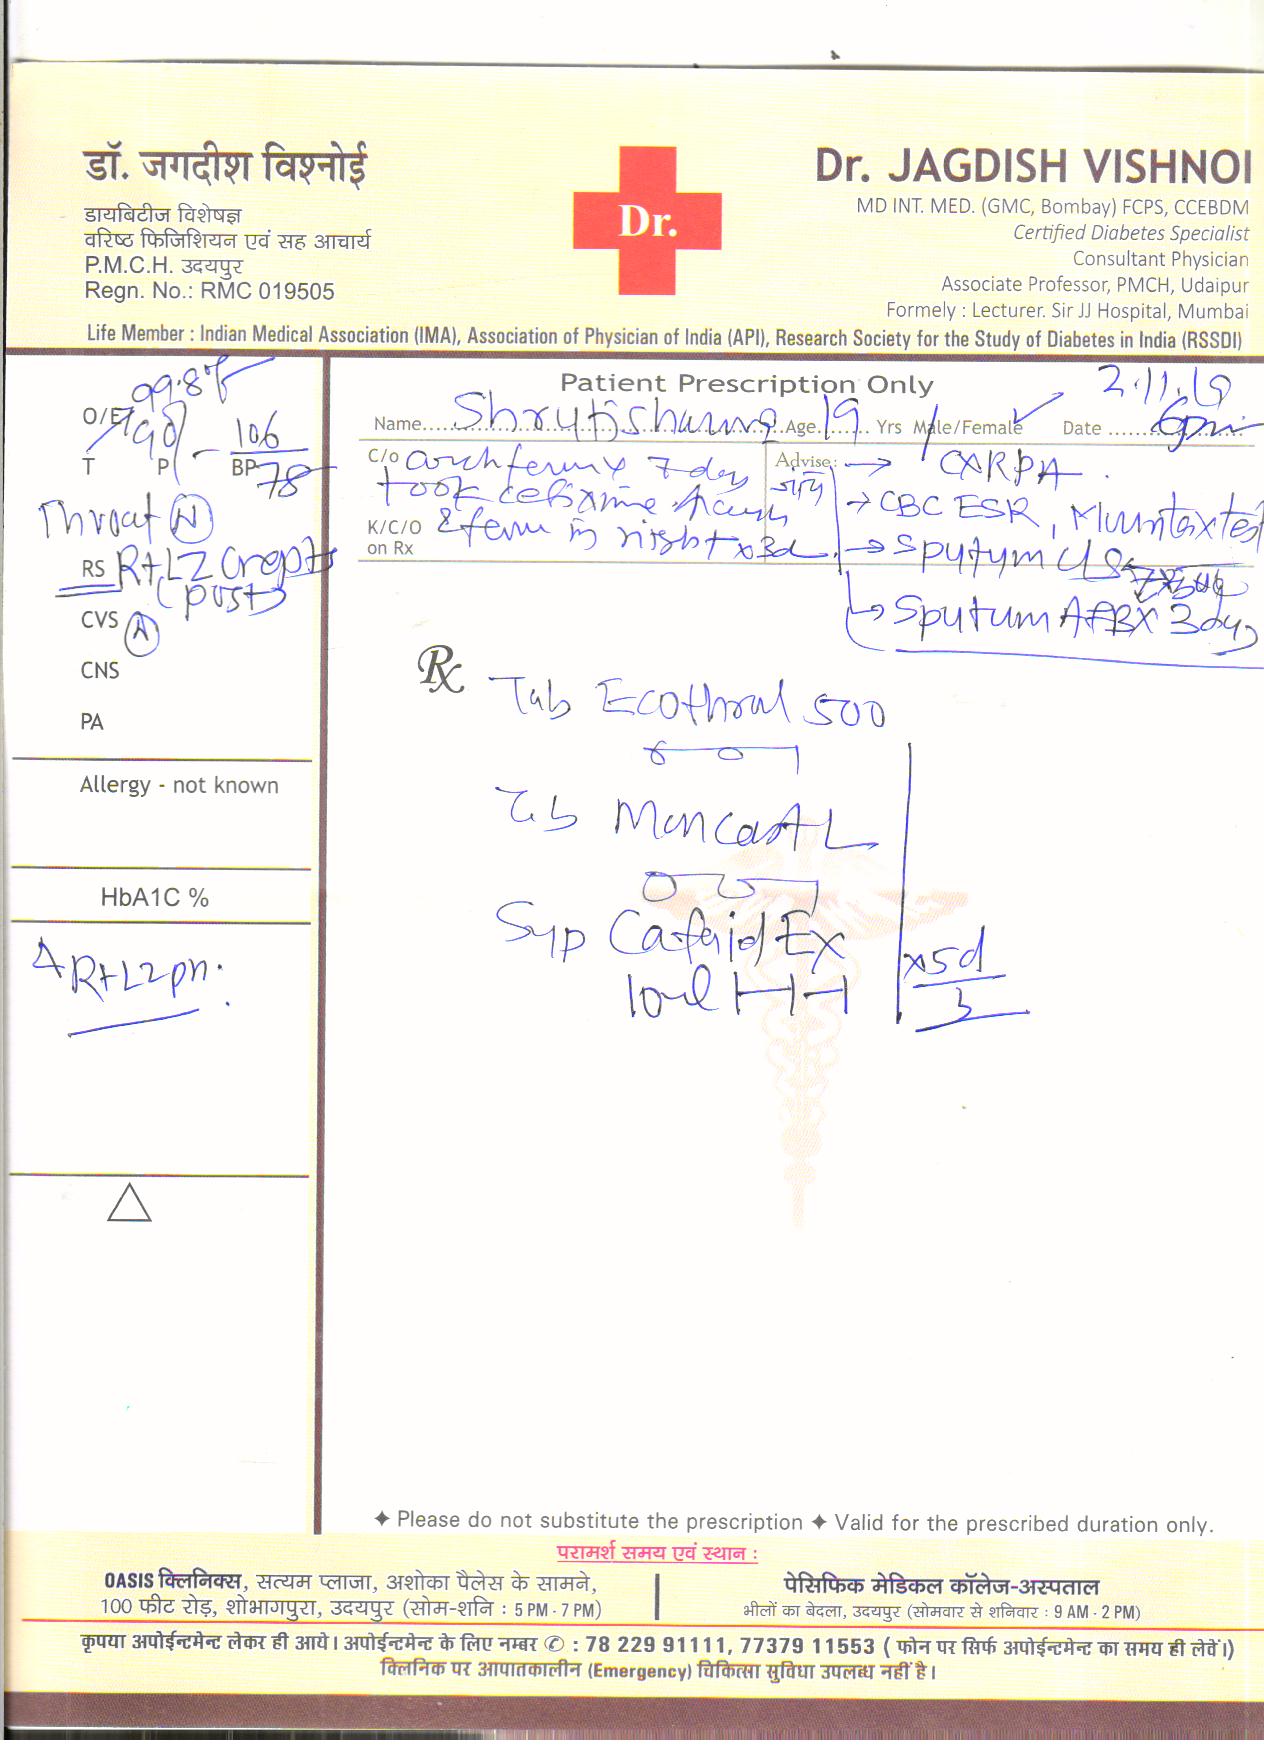 डॉ. जगदीश विश्नोई
डायबिटीज विशेषज्ञ
वरिष्ठ फिजिशियन एवं सह आचार्य
P.M.C.H. उदयपुर
Regn. No.: RMC 019505
Dr.
Dr. JAGDISH VISHNOI
MD INT. MED. (GMC, Bombay) FCPS, CCEBDM
Certified Diabetes Specialist
Consultant Physician
Associate Professor, PMCH, Udaipur
Formely : Lecturer. Sir JJ Hospital, Mumbai
Life Member : Indian Medical Association (IMA), Association of Physician of India (API), Research Society for the Study of Diabetes in India (RSSDI)
99.8°F
O/E
T P BP 106/78
Throat N
RS R+L2 crepts
(post)
CVS N
CNS
PA
Allergy - not known
HbA1C %
Δ R+L2 pn.
△
Patient Prescription Only
2.11.
Name Shruti Sharma Age 19 Yrs Male/Female ✓ Date 6pm
C/o 7 day
took
K/C/O & in night x 3d
on Rx
Advise: → CXR PA
→ CBC ESR, Muntax test
→ Sputum C/S
↳ Sputum AFB x 3 day
Rx
Tab Ecothral 500
Tab Moncast L
Syp Cafaid Ex
10ml
x5d
3
✦ Please do not substitute the prescription ✦ Valid for the prescribed duration only.
परामर्श समय एवं स्थान :
OASIS क्लिनिक्स, सत्यम प्लाजा, अशोका पैलेस के सामने,
100 फीट रोड़, शोभागपुरा, उदयपुर (सोम-शनि : 5 PM - 7 PM)
पेसिफिक मेडिकल कॉलेज-अस्पताल
भीलों का बेदला, उदयपुर (सोमवार से शनिवार : 9 AM - 2 PM)
कृपया अपोईन्टमेन्ट लेकर ही आये। अपोईन्टमेन्ट के लिए नम्बर ✆ : 78 229 91111, 77379 11553 ( फोन पर सिर्फ अपोईन्टमेन्ट का समय ही लेवें।)
क्लिनिक पर आपातकालीन (Emergency) चिकित्सा सुविधा उपलब्ध नहीं है।